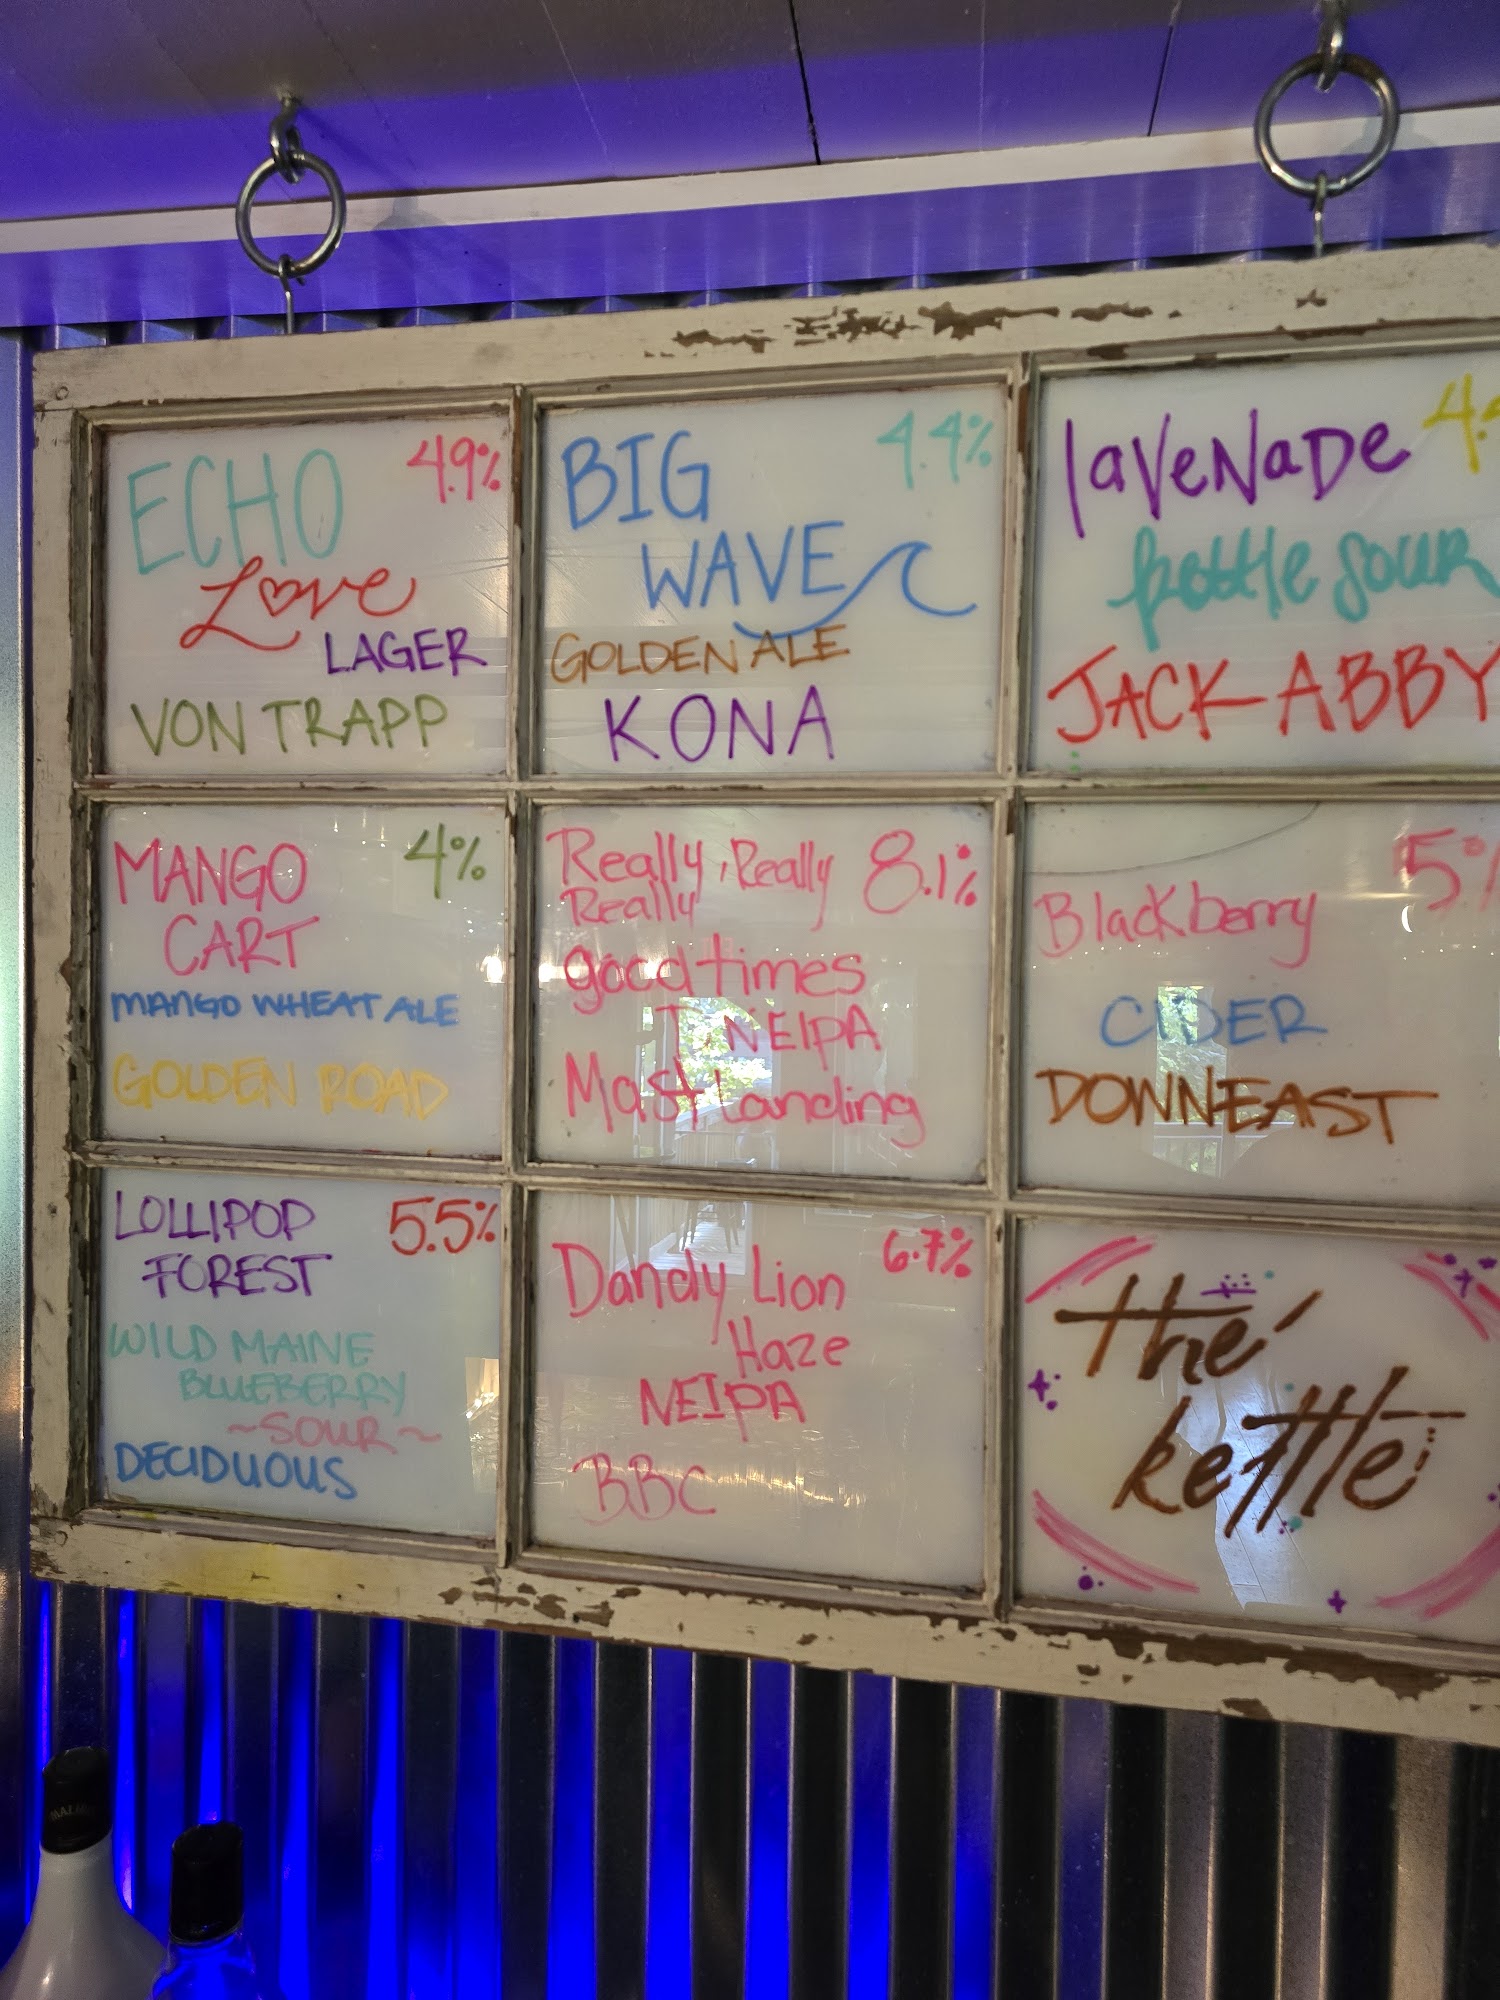 ECHO 4.9%
Love
LAGER
VON TRAPP
BIG 4.4%
WAVE
GOLDEN ALE
KONA
lavenade
kettle sour
JACK ABBY
MANGO 4%
CART
MANGO WHEAT ALE
GOLDEN ROAD
Really, Really 8.1%
Really
good times
I. NEIPA
Mast Landing
5%
Blackberry
CIDER
DOWNEAST
LOLLIPOP 5.5%
FOREST
WILD MAINE
BLUEBERRY
~SOUR~
DECIDUOUS
Dandy Lion 6.7%
Haze
NEIPA
BBC
the
kettle